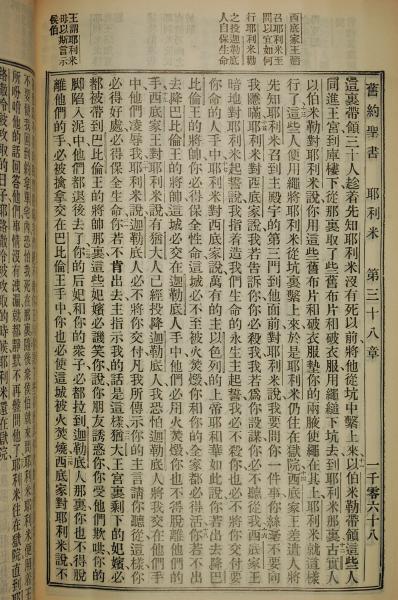 舊約聖書 耶利米 第三十八章 一千零六十八
西底家王
召耶利米至
問以宜如何
行耶利米勸
之投迦勒底
人自保生命
王謂耶利米
毋以斯言示
侯伯
這裏帶領三十人趁着先知耶利米沒有死以前將他從坑中繫上來以伯米勒帶領這些人
同進王宮到庫樓下從那裏取了些舊布片和破衣服用繩縋下坑去到耶利米那裏古實人
以伯米勒對耶利米說你用這些舊布片和破衣服墊你的兩腋使繩在其上耶利米就這樣
行了這些人便用繩將耶利米從坑裏繫上來於是耶利米仍住在獄院西底家王差遣人將
先知耶利米召到主殿宇的第三門到他面前對耶利米說我要問你一件事你絲毫不要向
我隱瞞耶利米對西底家說我若告訴你你必殺我我若爲你設謀你必不聽從我西底家王
暗地對耶利米起誓說我指着造我們生命的永生主起誓我必不殺你也必不將你交付要
你命的人手中耶利米對西底家說萬有的主以色列的上帝耶和華如此說你若出去降巴
比倫王的將帥你必得保全性命這城必不至被火焚燬你和你的全家都必得活你若不出
去降巴比倫王的將帥這城必交在迦勒底人手中他們必用火焚燬你也不得脫離他們的
手西底家王對耶利米說有猶大人已經投降迦勒底人我恐怕迦勒底人將我交在他們手
中他們凌辱我耶利米說迦勒底人必不將你交付凡我所傳示你的主言請你聽從這樣你
必得好處必得保全生命你若不肯出去主指示我的話是這樣猶大王宮裏剩下的妃嬪必
都被帶到巴比倫王的將帥那裏這些妃嬪必譏笑你說你朋友誘惑你你受他們欺哄你的
脚陷入泥中他們都退去了你的后妃和你的衆子必都拉到迦勒底人那裏你也不得脫
離他們的手必被擒拿交在巴比倫王手中你也必使這城被火焚燒西底家對耶利米說不